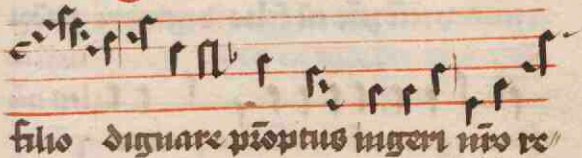 filio dignare pro̅ptus ingeri nr̅o re⸗